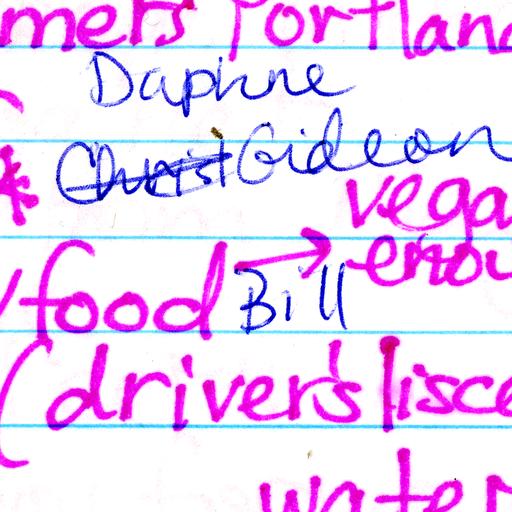 mers Portland
Daphne
Christ Gideon
* vega
food → enou
Bill
(driver's lisce
water